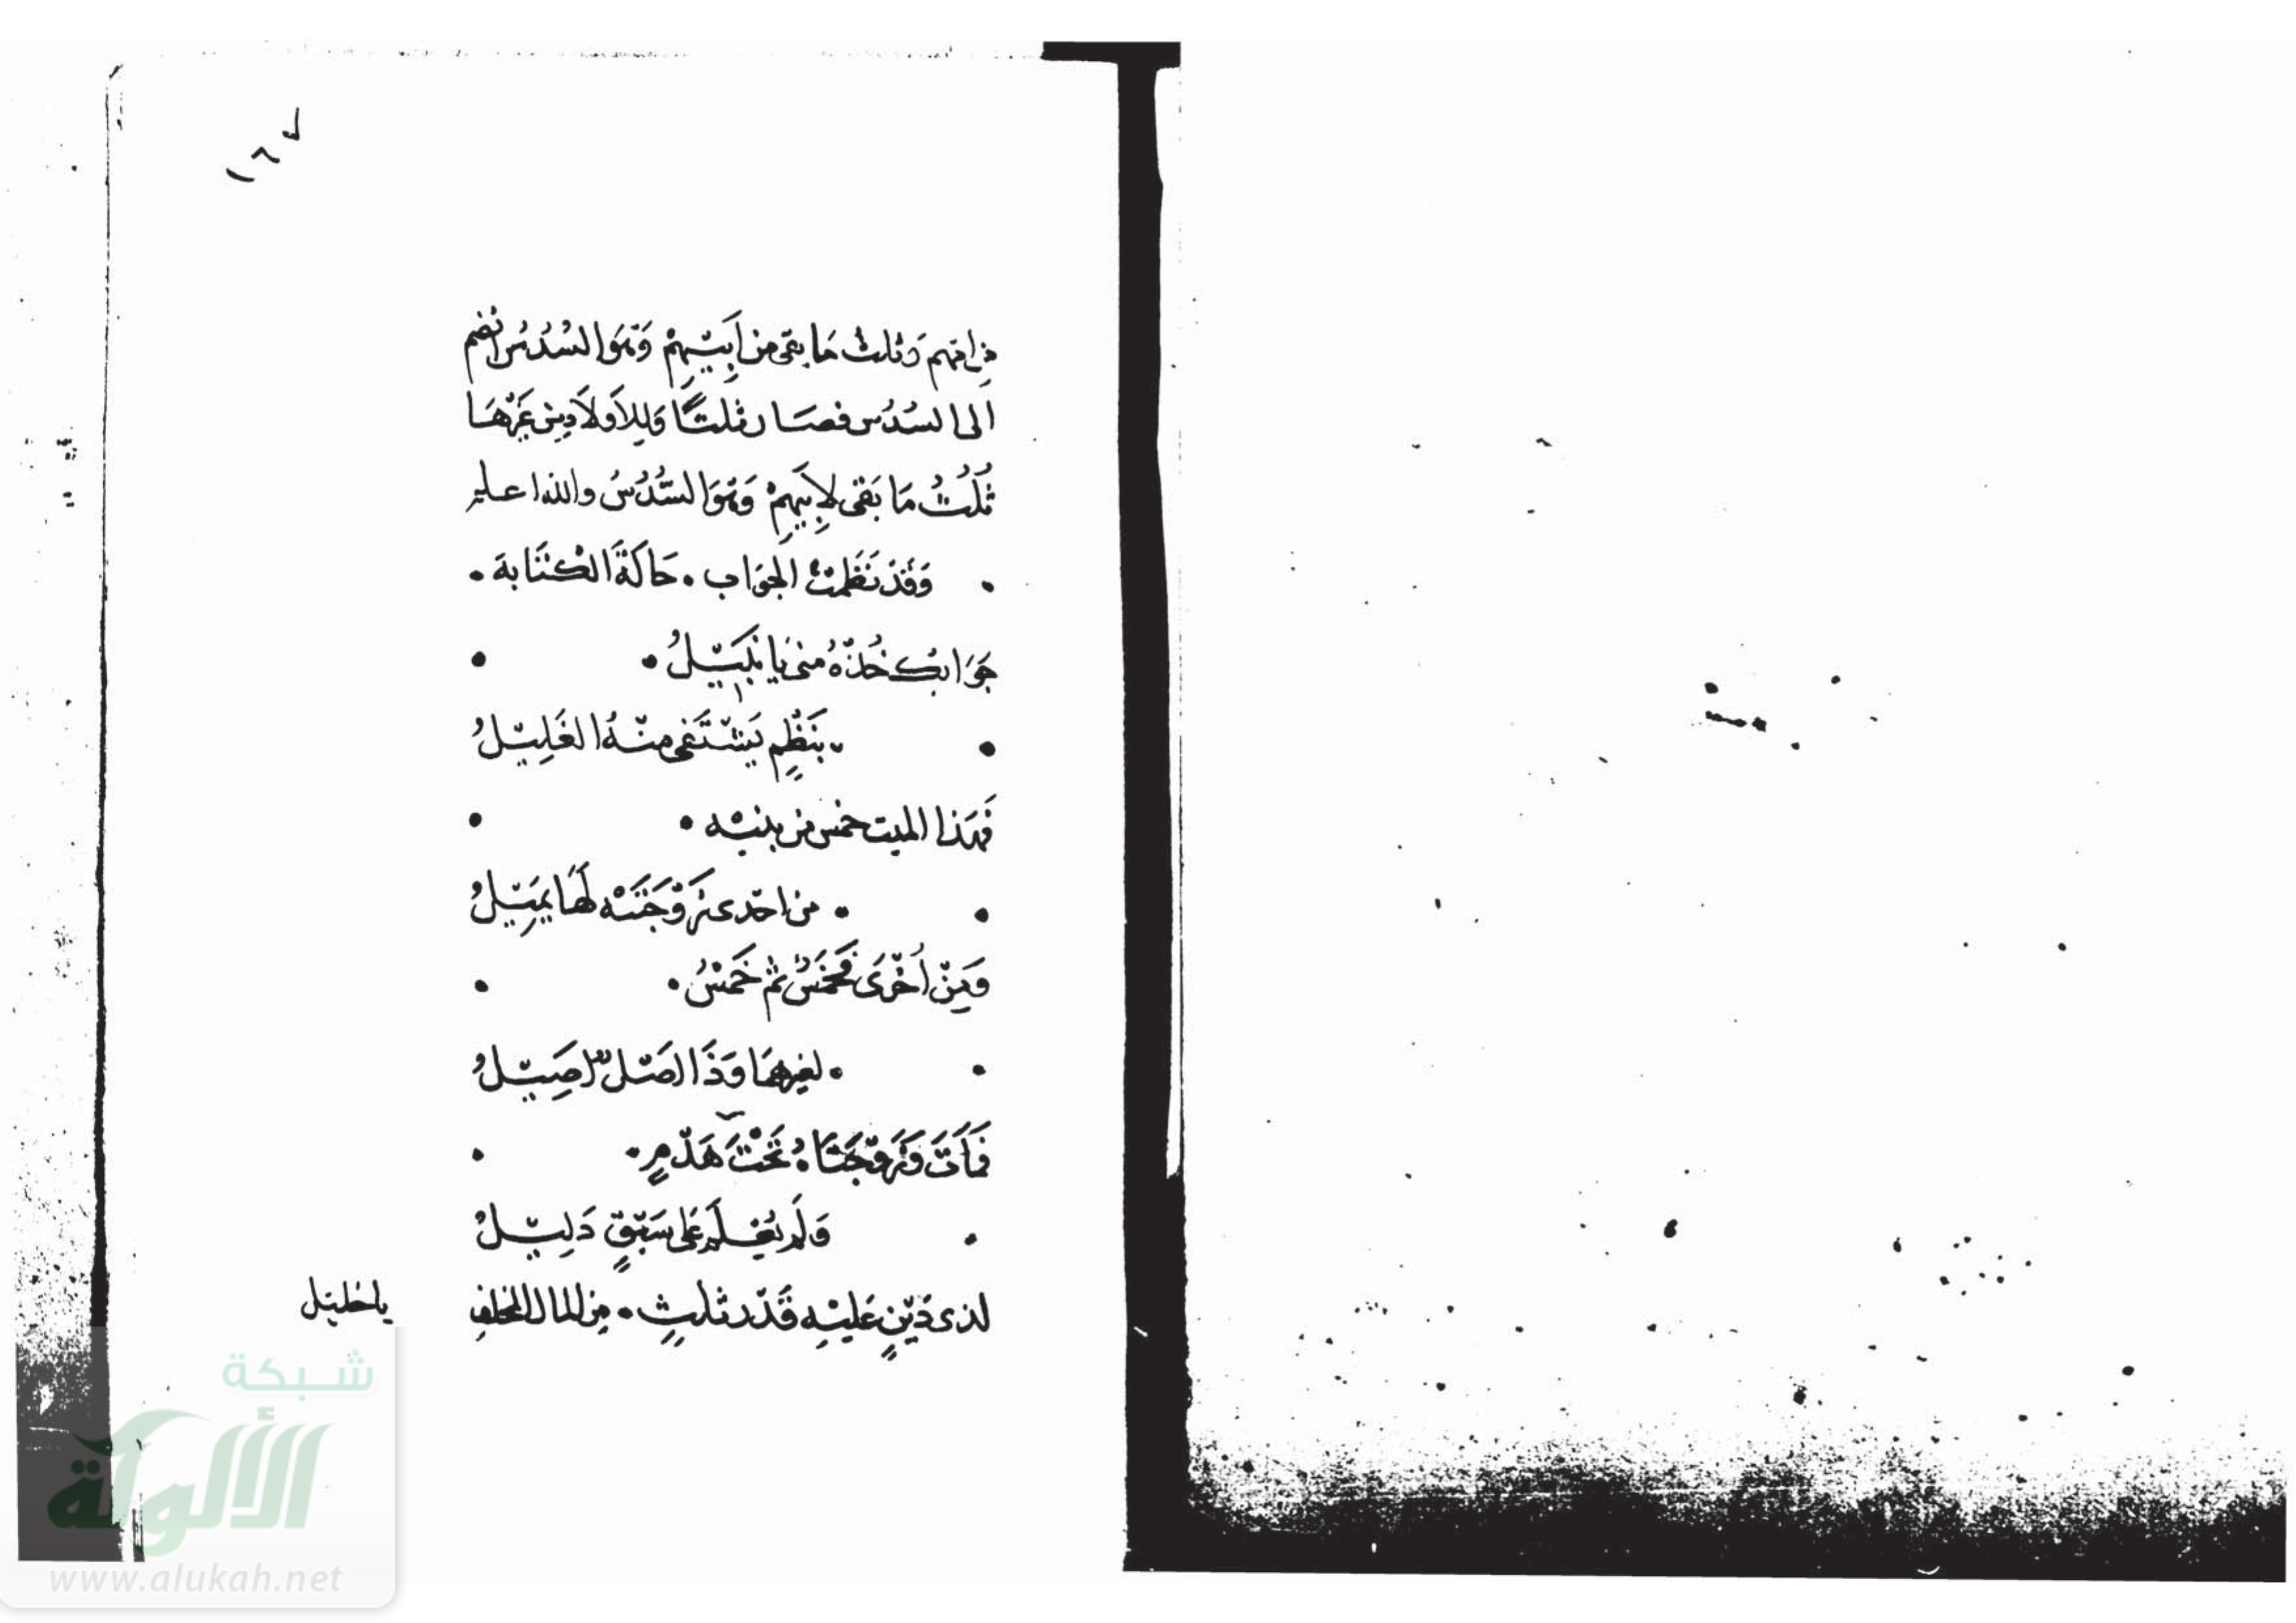 ١٦٧
من امهم وثلث مَا بقى من اَبِيْهِمْ وَهُوَ السُدُسُ انضم
الى السُدُس فصَار ثلثًا وَلِلأَولاَدِ مِن غَيْرهَا
ثُلُثُ مَا بَقى لِأَبِيهِمْ وَهُوَ السُّدُسُ والله اعلم
• وَقَدْ نَظَمْتُ الجوَاب • حَالَةَ الْكتَابة •
جَوَابكَ خُذْهُ منى يَا نَبِيْلُ • •
• • بنَظْمٍ يَشْتَفى منْهُ الغَلِيْلُ
فَهَذا الميت خمس من بنيْه • •
• • من احْدى زَوْجَتَيْه لَهَا يَمِيْلُ
وَمِنْ اُخْرَى فَخَمْسٌ ثم خَمْسُ • •
• • لغيرهَا وَذَا اصْلٌ اصِيْلُ
فمَاتَ وَزَوْجَتَاهُ تَحْتَ هَدْمٍ • •
• وَلَم يُعْلَم عَلَى سَبْقٍ دَلِيْلُ
لذى دَيْنٍ عَليْهِ قَدْر ثلثٍ • مِن المال المخلف
يا خليل
شبكة
الألوكة
www.alukah.net